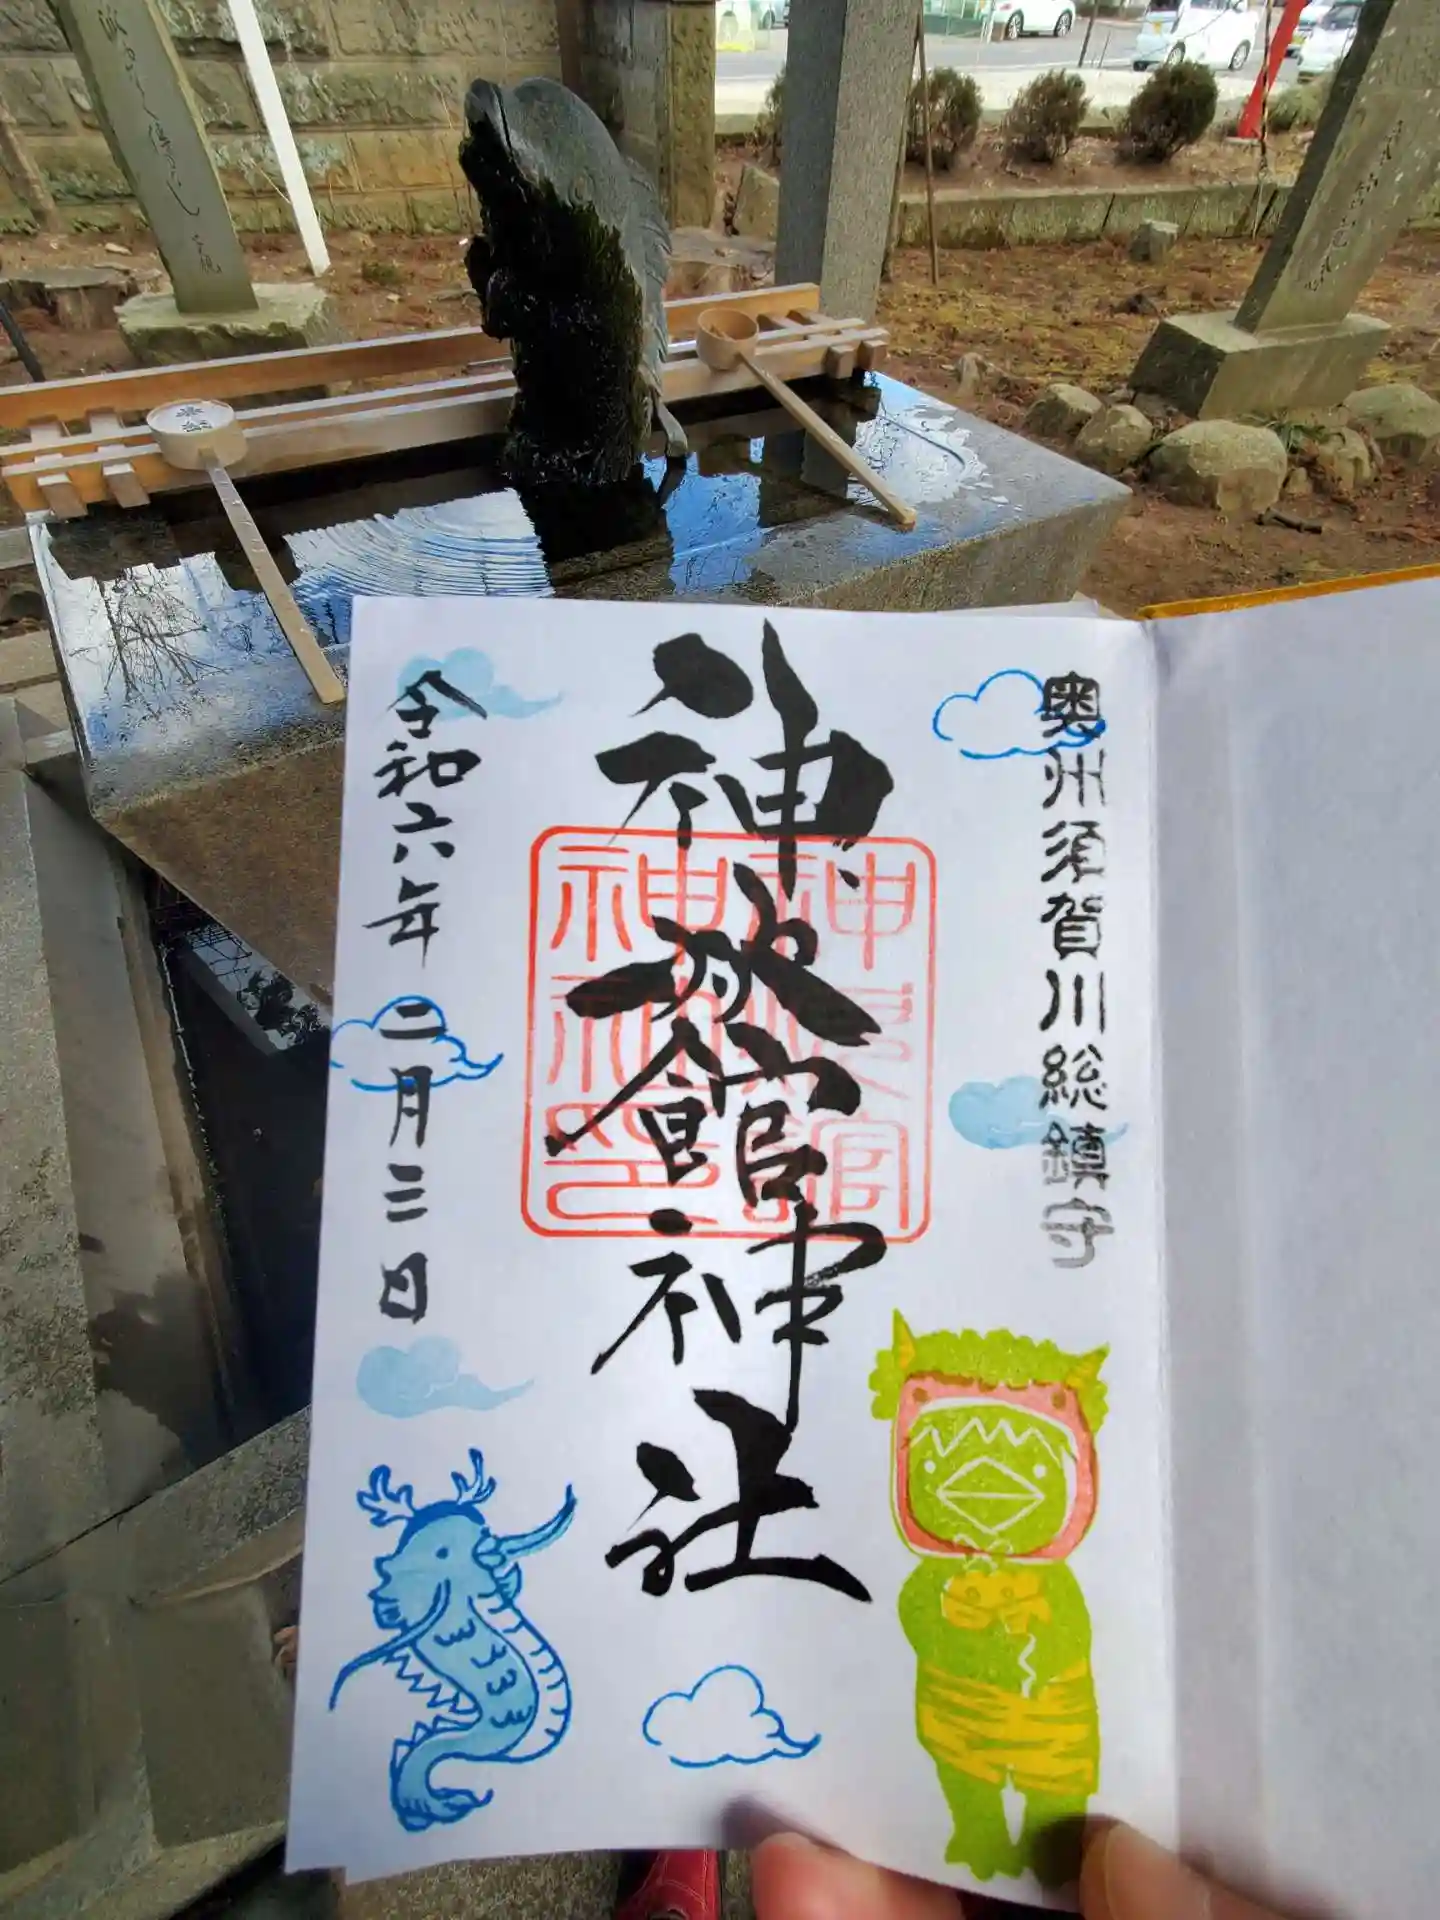 奥州須賀川総鎮守
神炊館神社
令和六年 二月三日